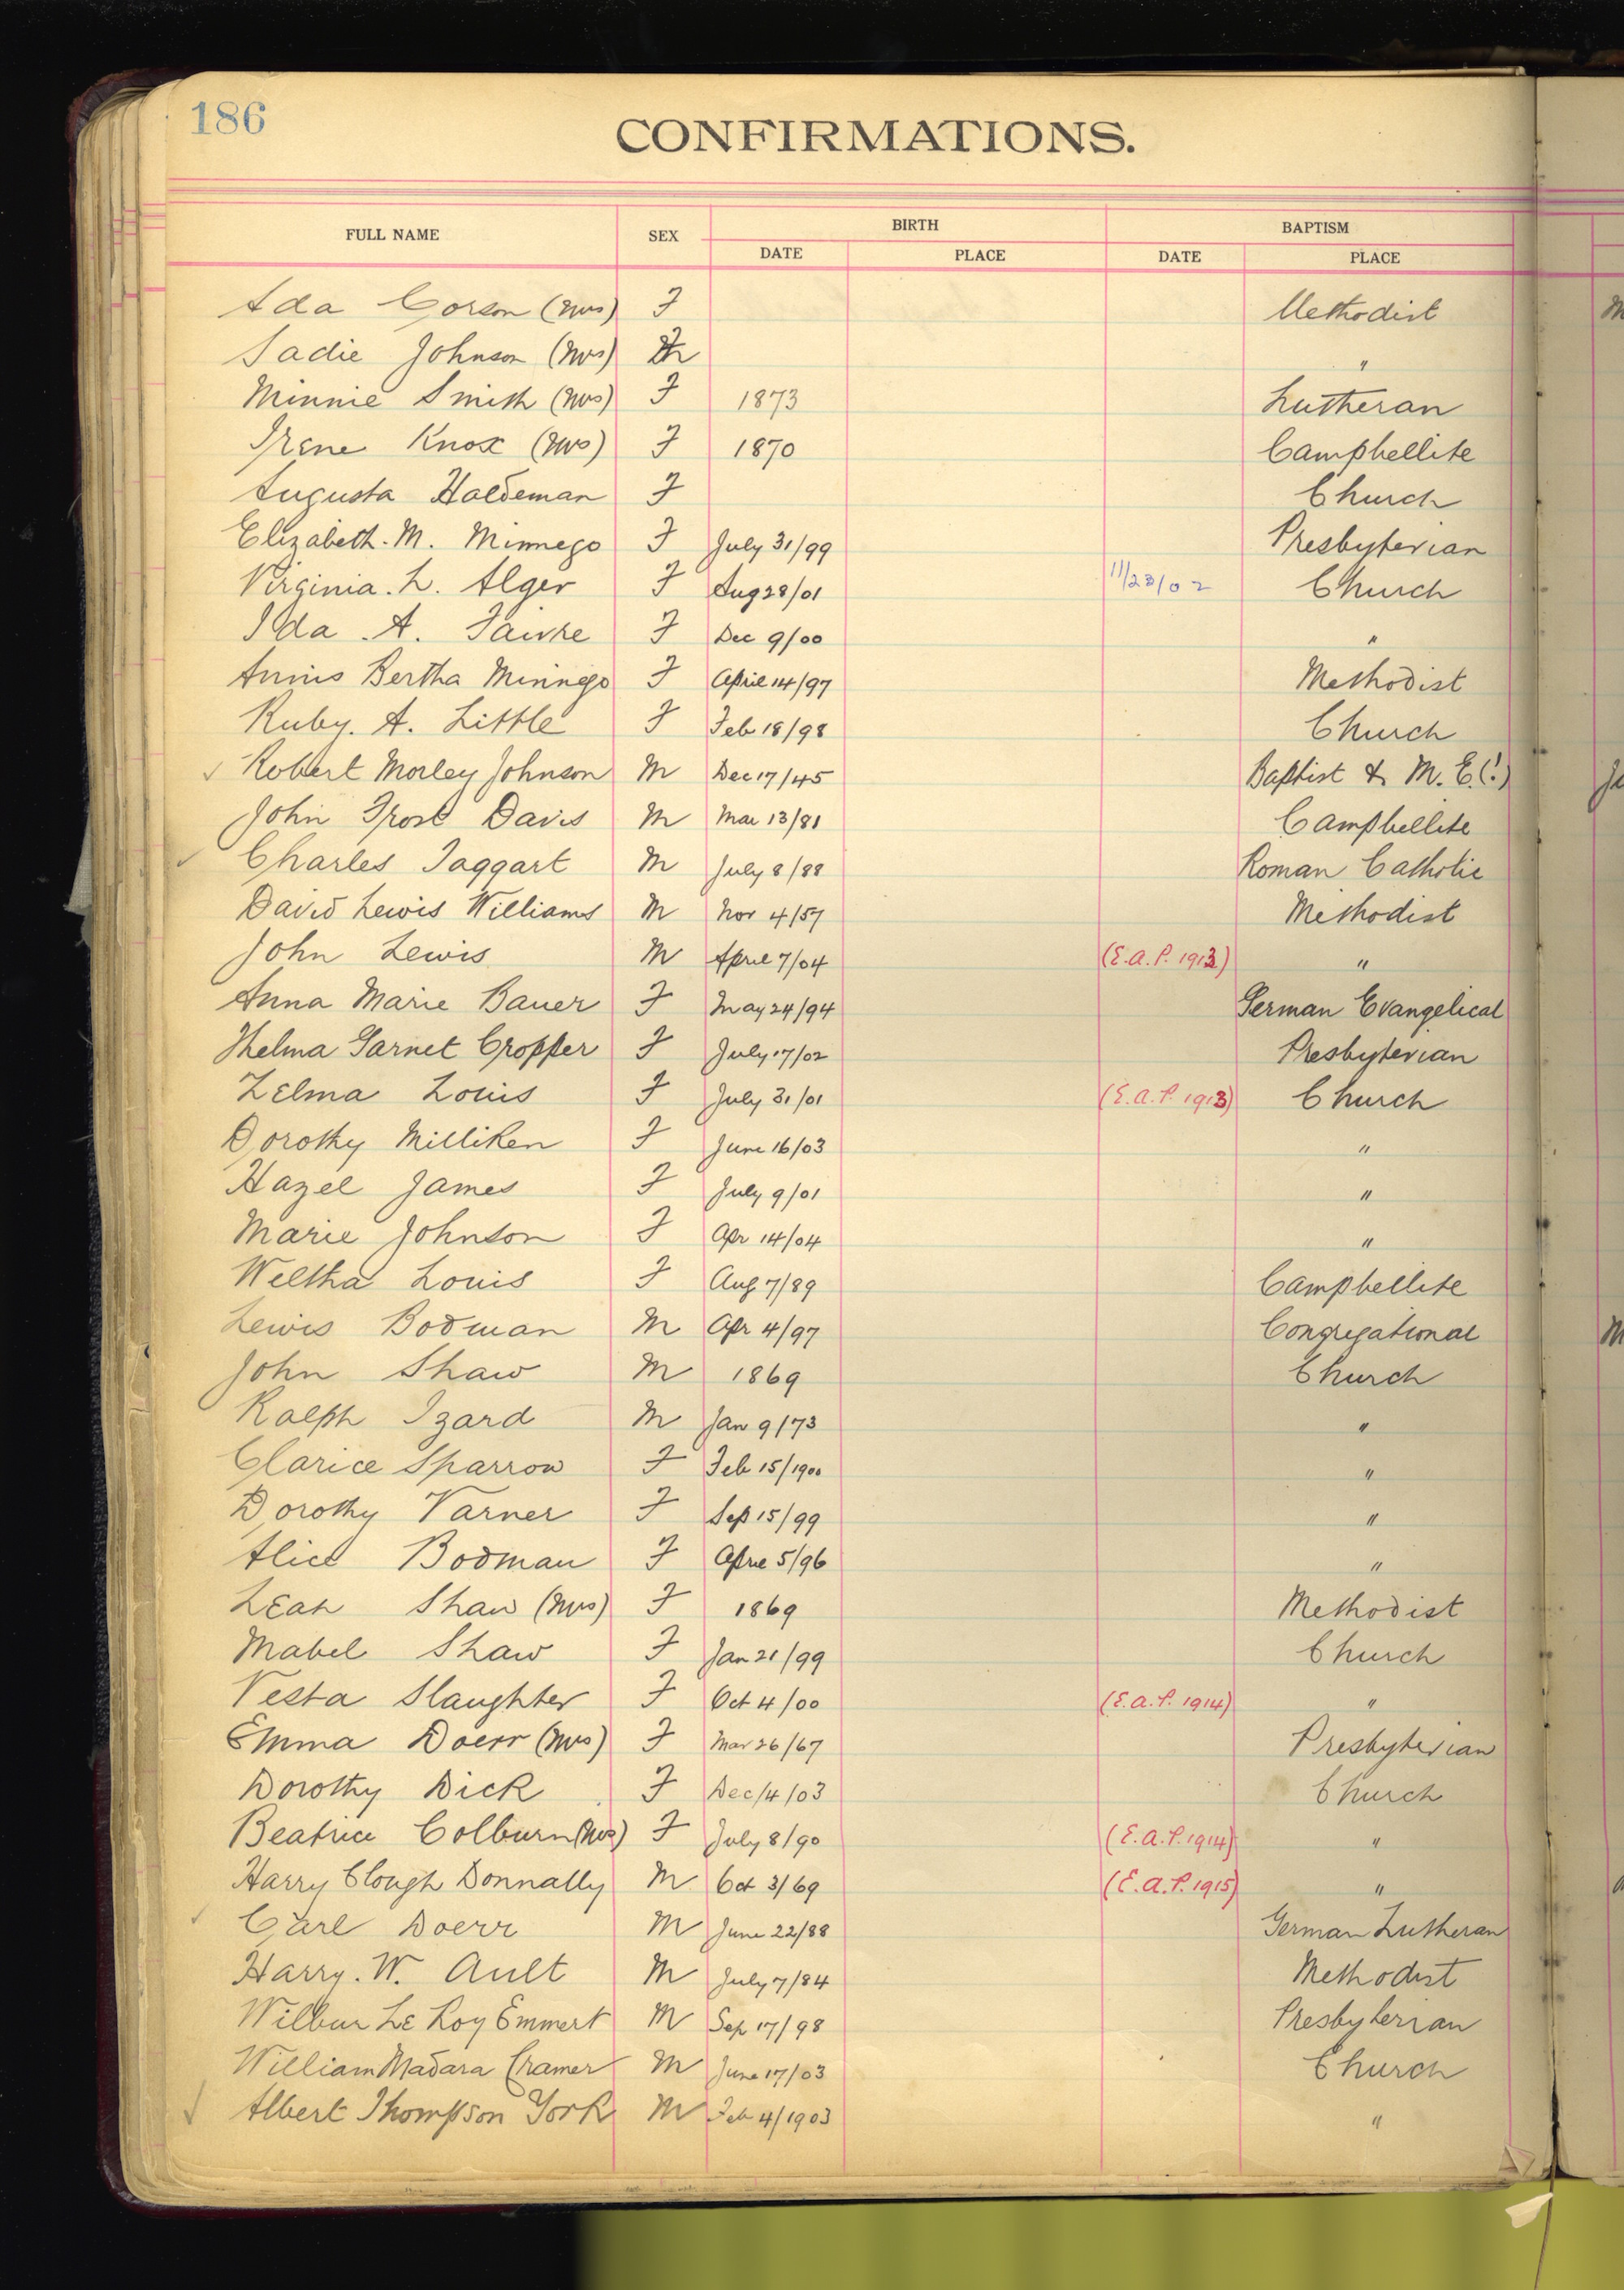 186
CONFIRMATIONS.
FULL NAME SEX BIRTH BAPTISM
DATE PLACE DATE PLACE
Ada Corson (Mrs) F Methodist
Sadie Johnson (Mrs) "
Minnie Smith (Mrs) F 1873 Lutheran
Irene Knox (Mrs) F 1870 Campbellite
Augusta Haldeman F Church
Elizabeth. M. Minnego F July 31/99 Presbyterian
Virginia. L. Alger F Aug 28/01 11/23/02 Church
Ida . A. F Dec 9/00 "
Annis Bertha Minnego F April 14/97 Methodist
Ruby. A. Little F Feb 18/98 Church
✓ Robert Morley Johnson M Dec 17/45 Baptist & M. E. (!)
John Frost Davis M Mar 13/81 Campbellite
✓ Charles Taggart M July 8/88 Roman Catholic
David Lewis Williams M Nov 4/57 Methodist
John Lewis M April 7/04 (E.A.P. 1913) "
Anna Marie Bauer F May 24/94 German Evangelical
Thelma Garnet Cropper F July 17/02 Presbyterian
Zelma Louis F July 31/01 (E.A.P. 1913) Church
Dorothy Milliken F June 16/03 "
Hazel James F July 9/01 "
Marie Johnson F Apr 14/04 "
Weltha Louis F Aug 7/89 Campbellite
Lewis Bodman M Apr 4/97 Congregational
John Shaw M 1869 Church
Ralph Izard M Jan 9/73 "
Clarice Sparrow F Feb 15/1900 "
Dorothy Varner F Sep 15/99 "
Alice Bodman F 5/96 "
Leah Shaw (Mrs) F 1869 Methodist
Mabel Shaw F Jan 21/99 Church
Vesta Slaughter F Oct 4/00 (E.A.P. 1914) "
Emma Doerr (Mrs) F Mar 26/67 Presbyterian
Dorothy Dick F Dec/4/03 Church
Beatrice Colburn (Mrs) F July 8/90 (E.A.P. 1914) "
Harry Clough Donnally M Oct 3/69 (E.A.P. 1915) "
✓ Carl Doerr M June 22/88 German Lutheran
Harry. W. Ault M July 7/84 Methodist
Wilbur Le Roy Emmert M Sep 17/98 Presbyterian
William Madara Cramer M June 17/03 Church
✓ Albert Thompson York M Feb 4/1903 "